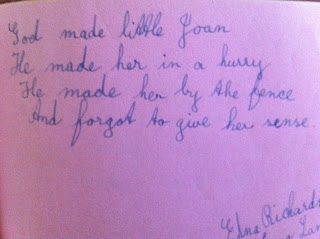 God made little Joan
He made her in a hurry
He made her by the fence
And forgot to give her sense.
Edna Richards